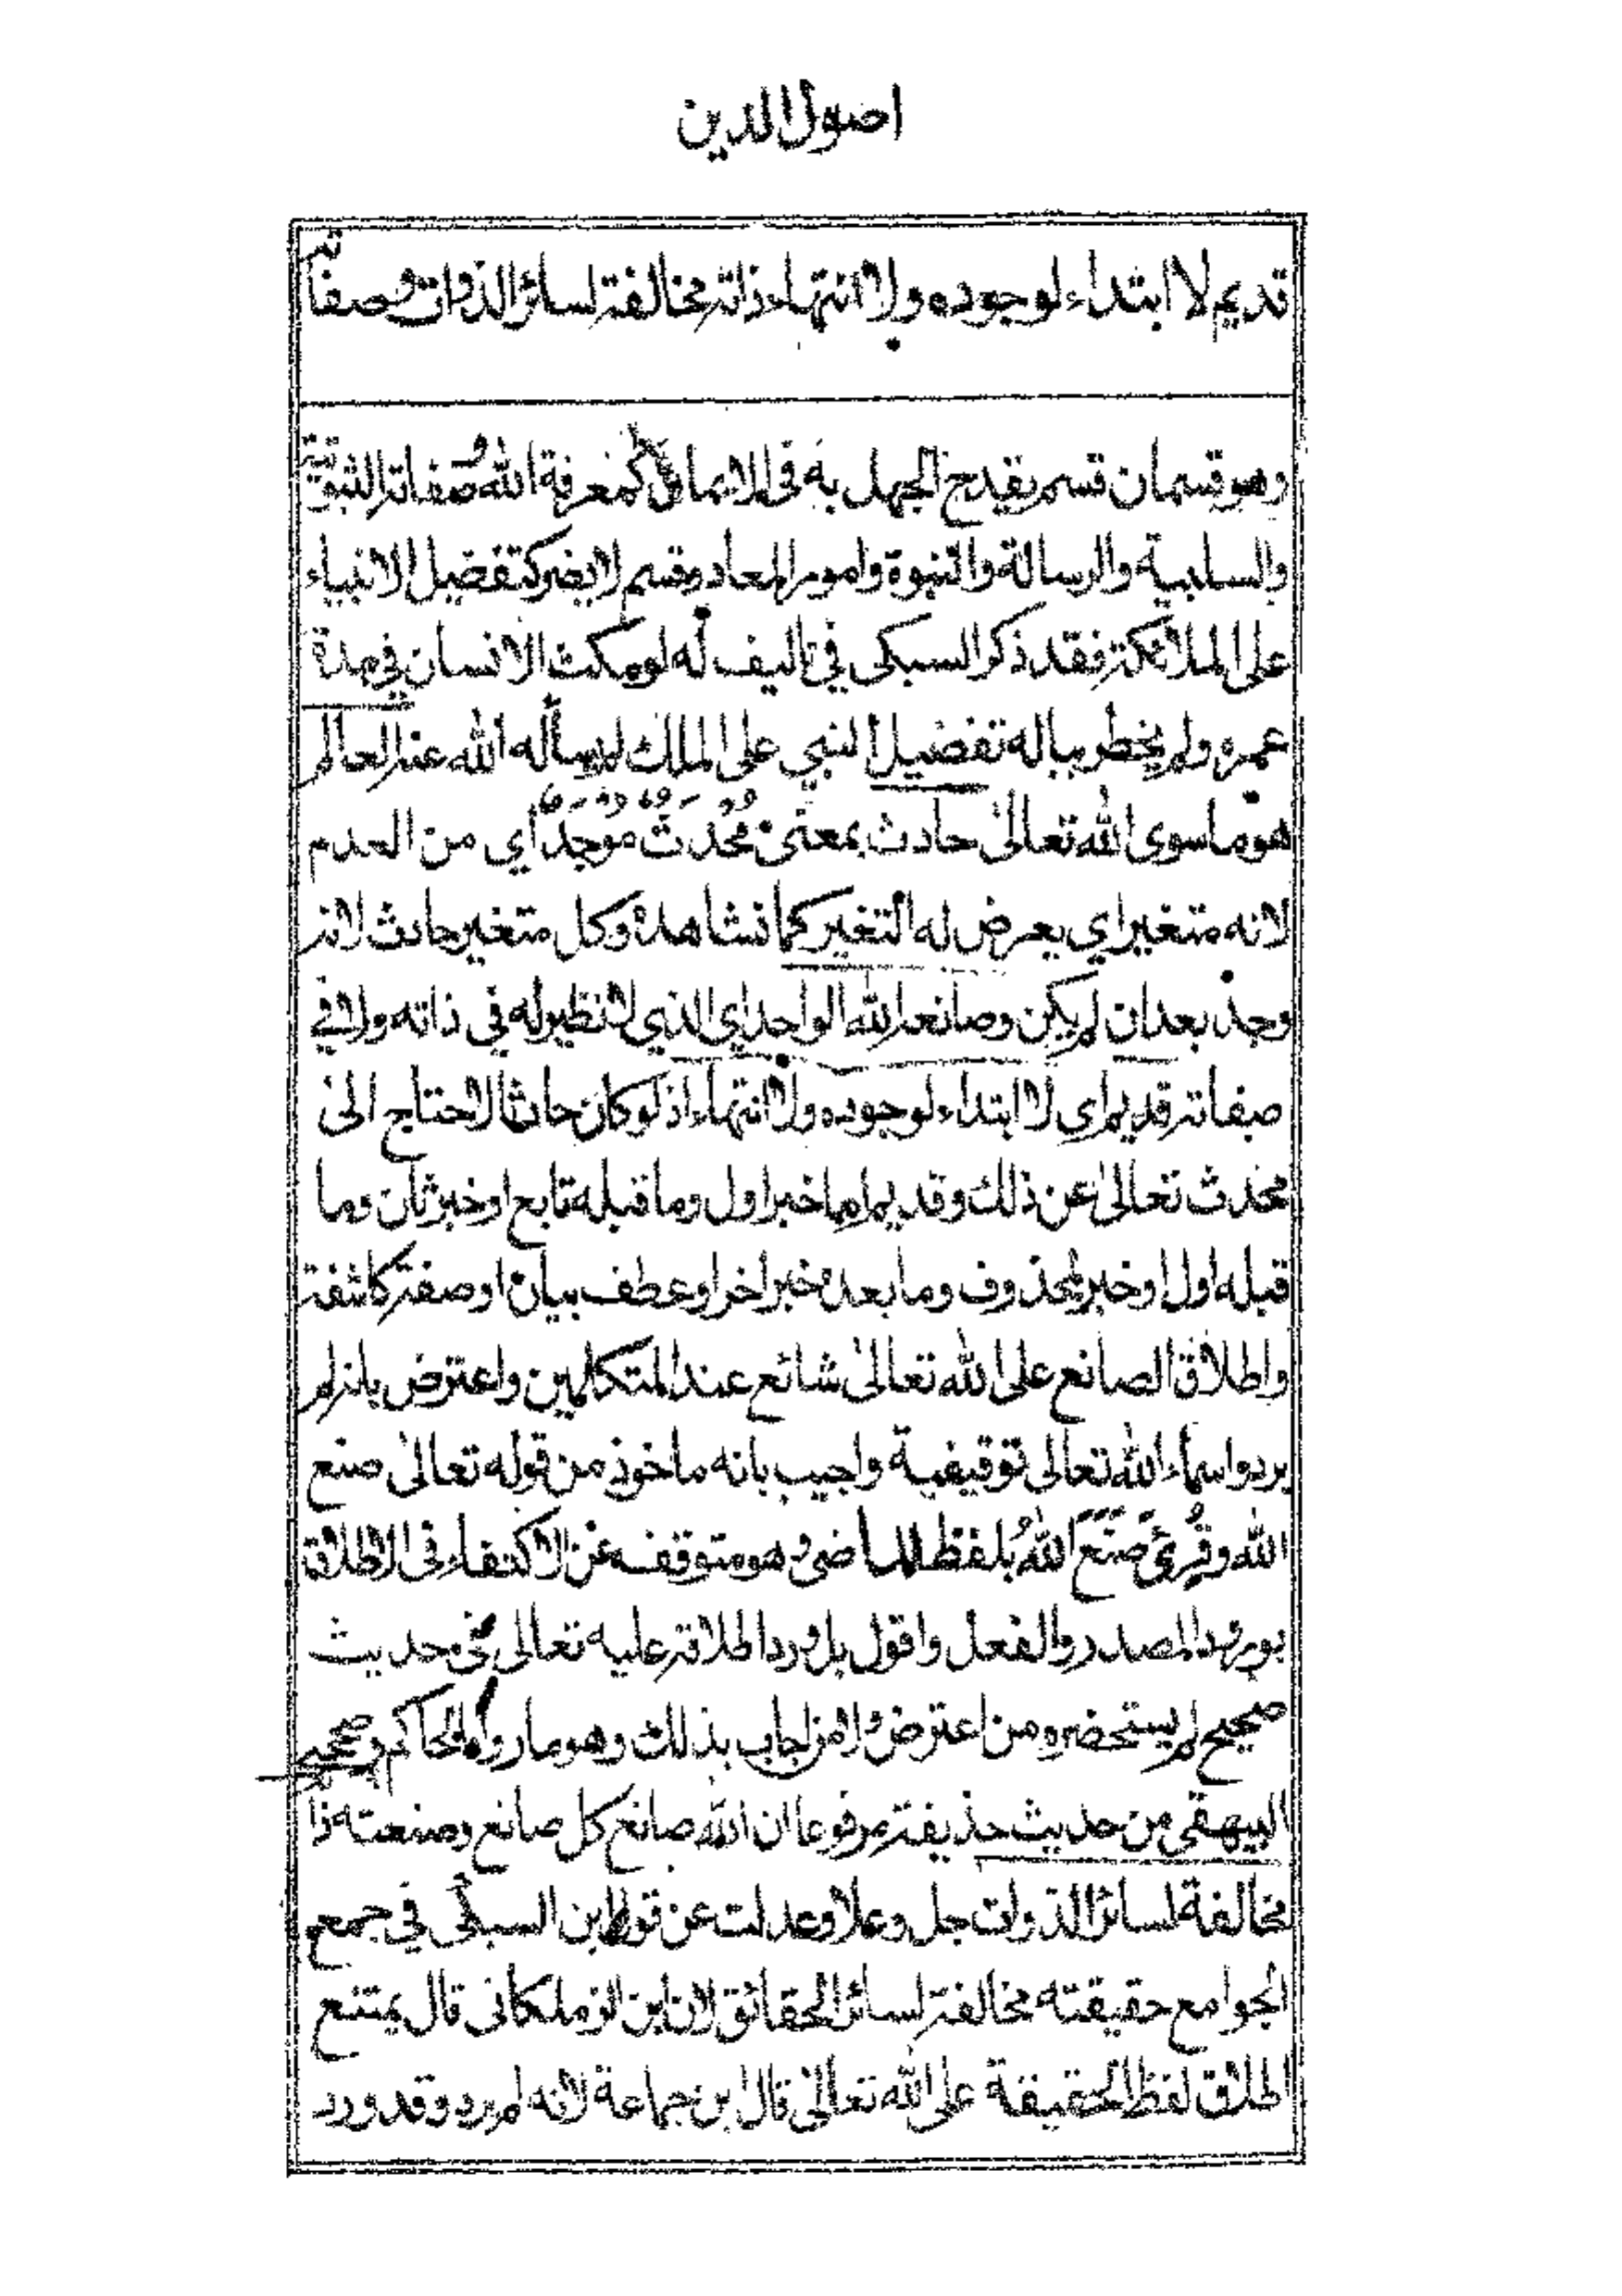 اصول الدين
قديم لا ابتداء لوجوده ولا انتهاء ذاته مخالفة لسائر الذوات وصفاته
وهو قسمان قسم يقدح الجهل به في الايمان كمعرفة الله وصفاته الثبوتية
والسلبية والرسالة والنبوة وامور المعاد وقسم لا يضر كتفضيل الانبياء
على الملائكة فقد ذكر السبكى في تاليف له لو مكث الانسان في مدة
عمره ولم يخطر بباله تفضيل النبي على الملك لم يسأله الله عنه العالم
هو ما سوى الله تعالى حادث بمعنى مُحْدَث مُوجَد أي من العدم
لانه متغير اي يعرض له التغير كما نشاهده وكل متغير حادث لانه
وجد بعد ان لم يكن وصانعه الله الواحد اي الذي لا نظير له في ذاته ولا في
صفاته قديم اي لا ابتداء لوجوده ولا انتهاء اذ لو كان حادثا لاحتاج الى
محدث تعالى عن ذلك وقديم اما خبر اول وما قبله تابع او خبر ثان وما
قبله اول او خبر لمحذوف وما بعده خبر اخر او عطف بيان او صفة كاشفة
واطلاق الصانع على الله تعالى شائع عند المتكلمين واعترض بانه لم
يرد واسماء الله تعالى توقيفية واجيب بانه ماخوذ من قوله تعالى صنع
الله وقُرِئ صَنَعَ اللهُ بلفظ الماضى وهو متوقف عن الاكتفاء فى الاطلاق
بورود المصدر والفعل واقول بل ورد اطلاقه عليه تعالى في حديث
صحيح لم يستحضره من اعترض ولا من اجاب بذلك وهو ما رواه الحاكم وصححه
البيهقى من حديث حذيفة مرفوعا ان الله صانع كل صانع وصنعته ذا
مخالفة لسائر الذوات جل وعلا وعدلت عن قول ابن السبكى في جمع
الجوامع حقيقته مخالفة لسائر الحقائق لان ابن الزملكانى قال يمتنع
اطلاق لفظ الحقيقة على الله تعالى قال ابن جماعة لانه لم يرد وقد ورد